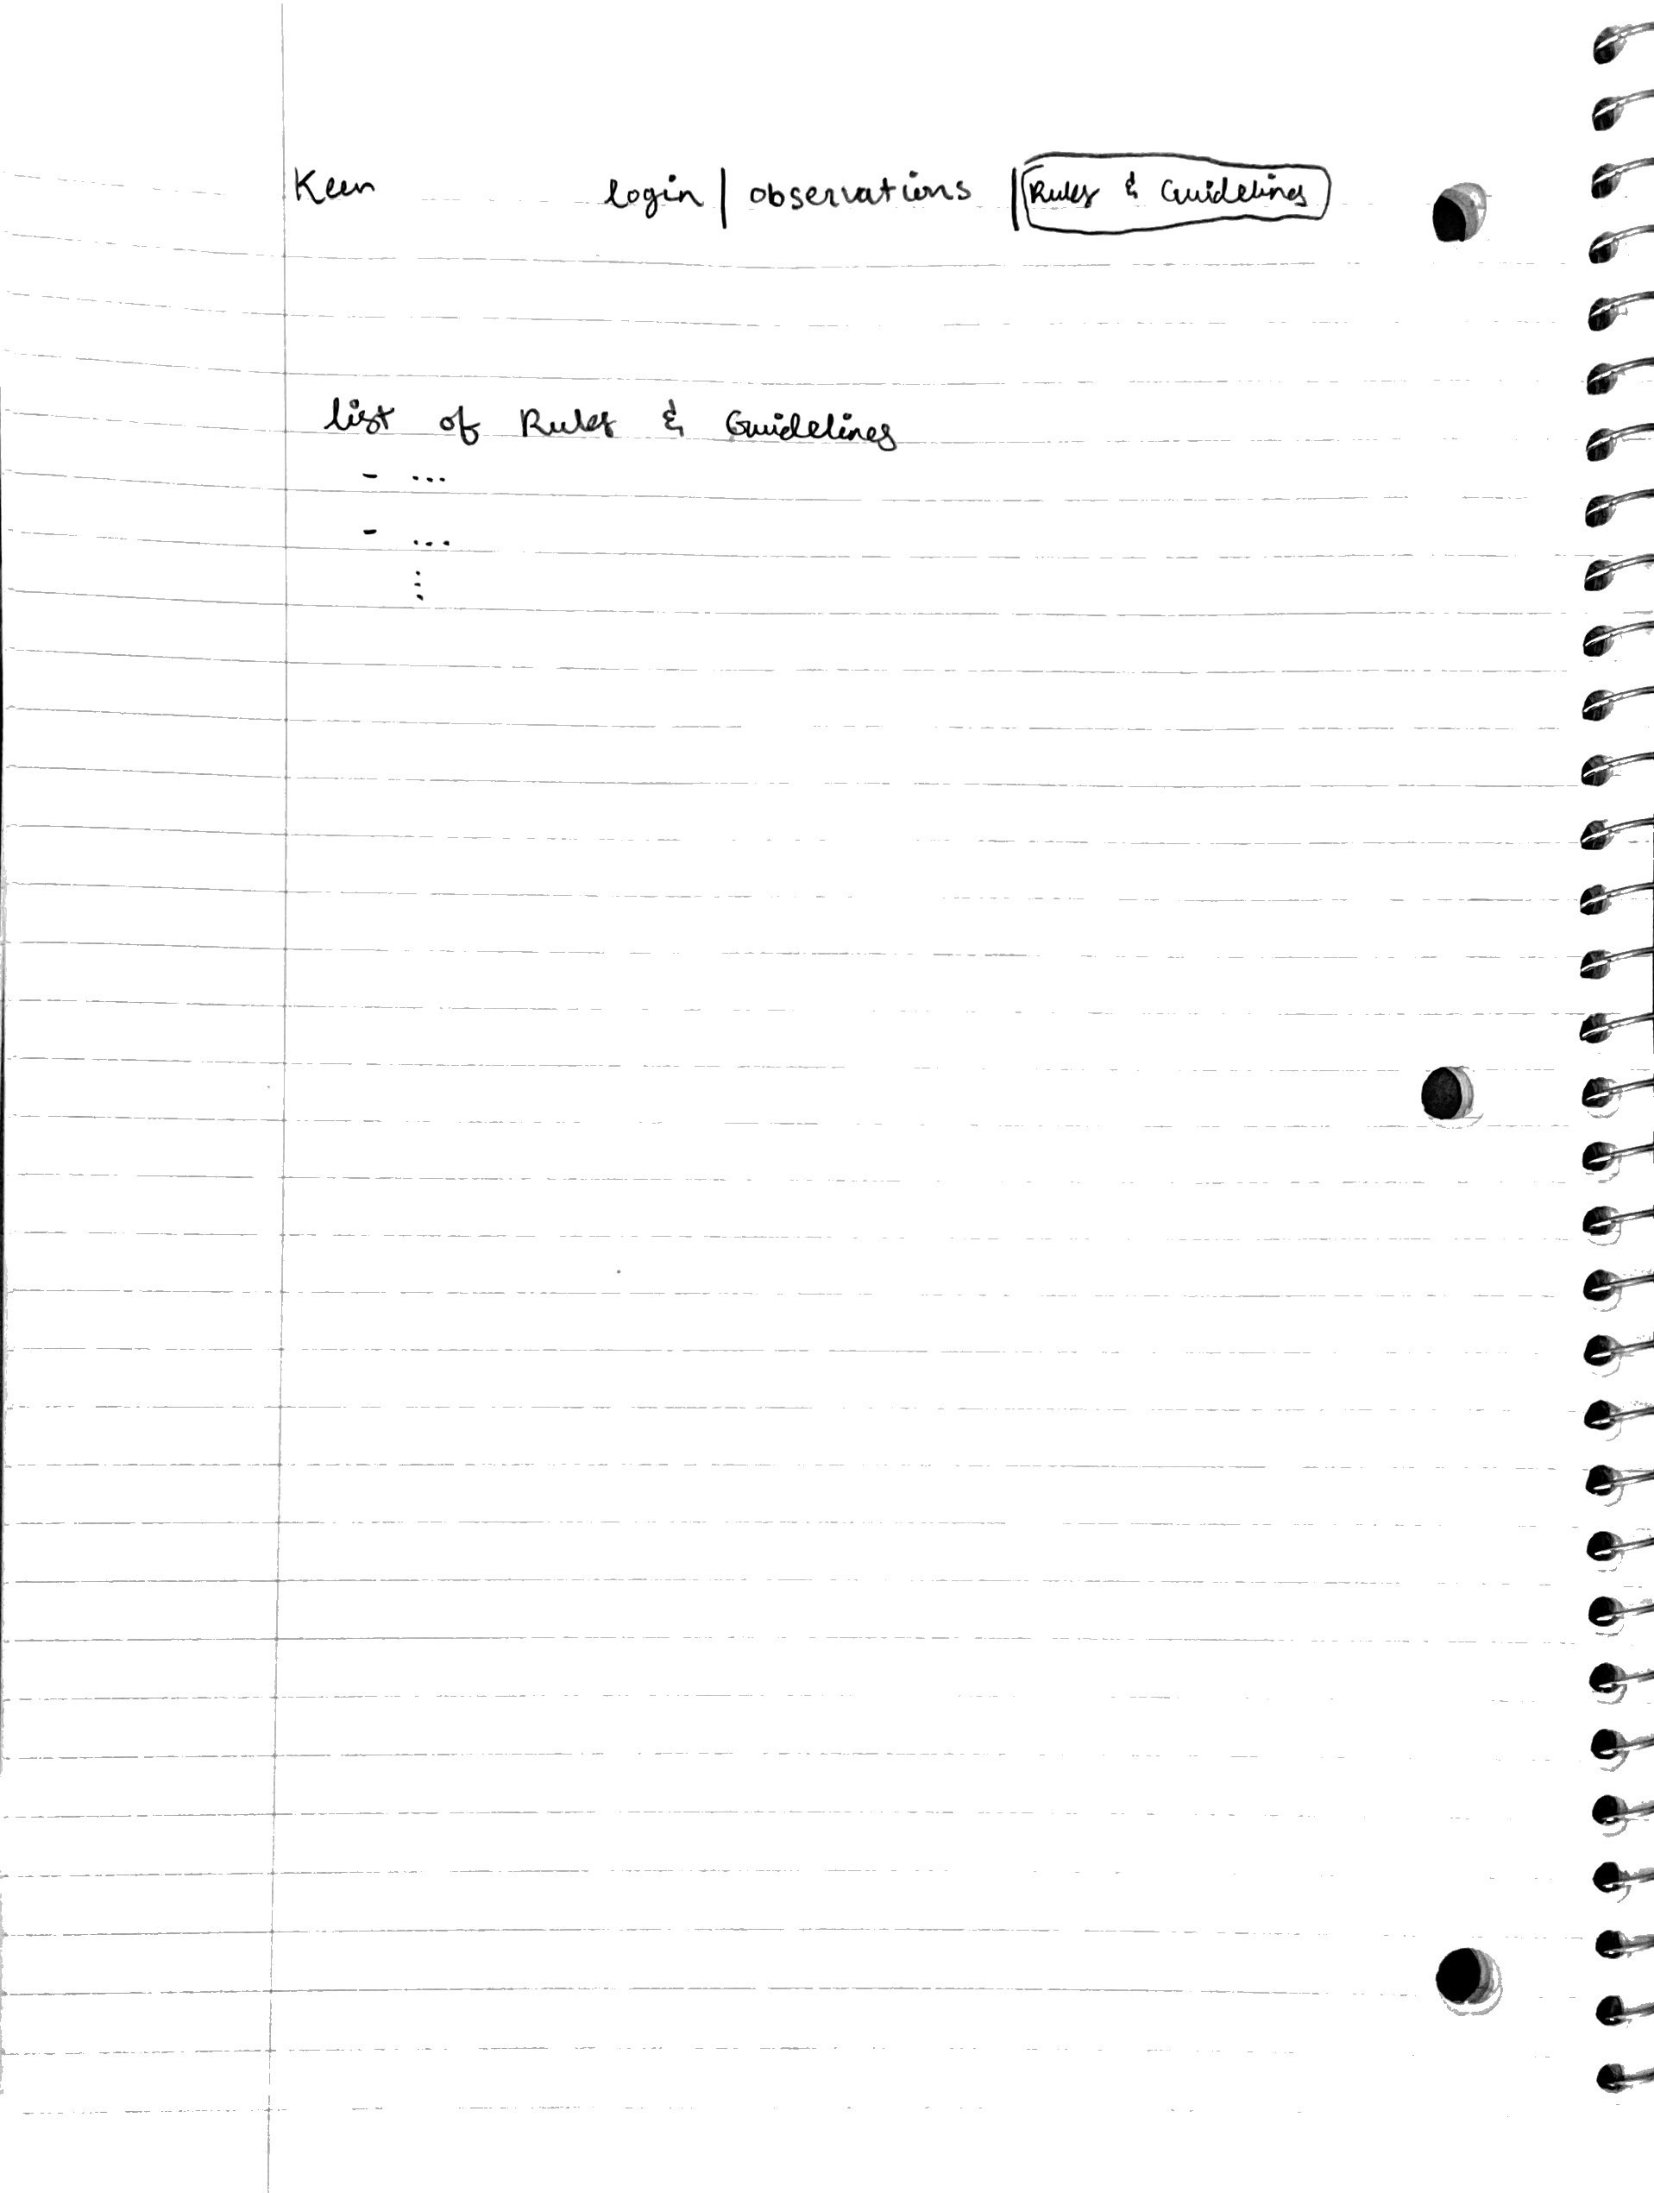 Keen login | observations | Rules & Guidelines
list of Rules & Guidelines
- ...
- ...
⋮